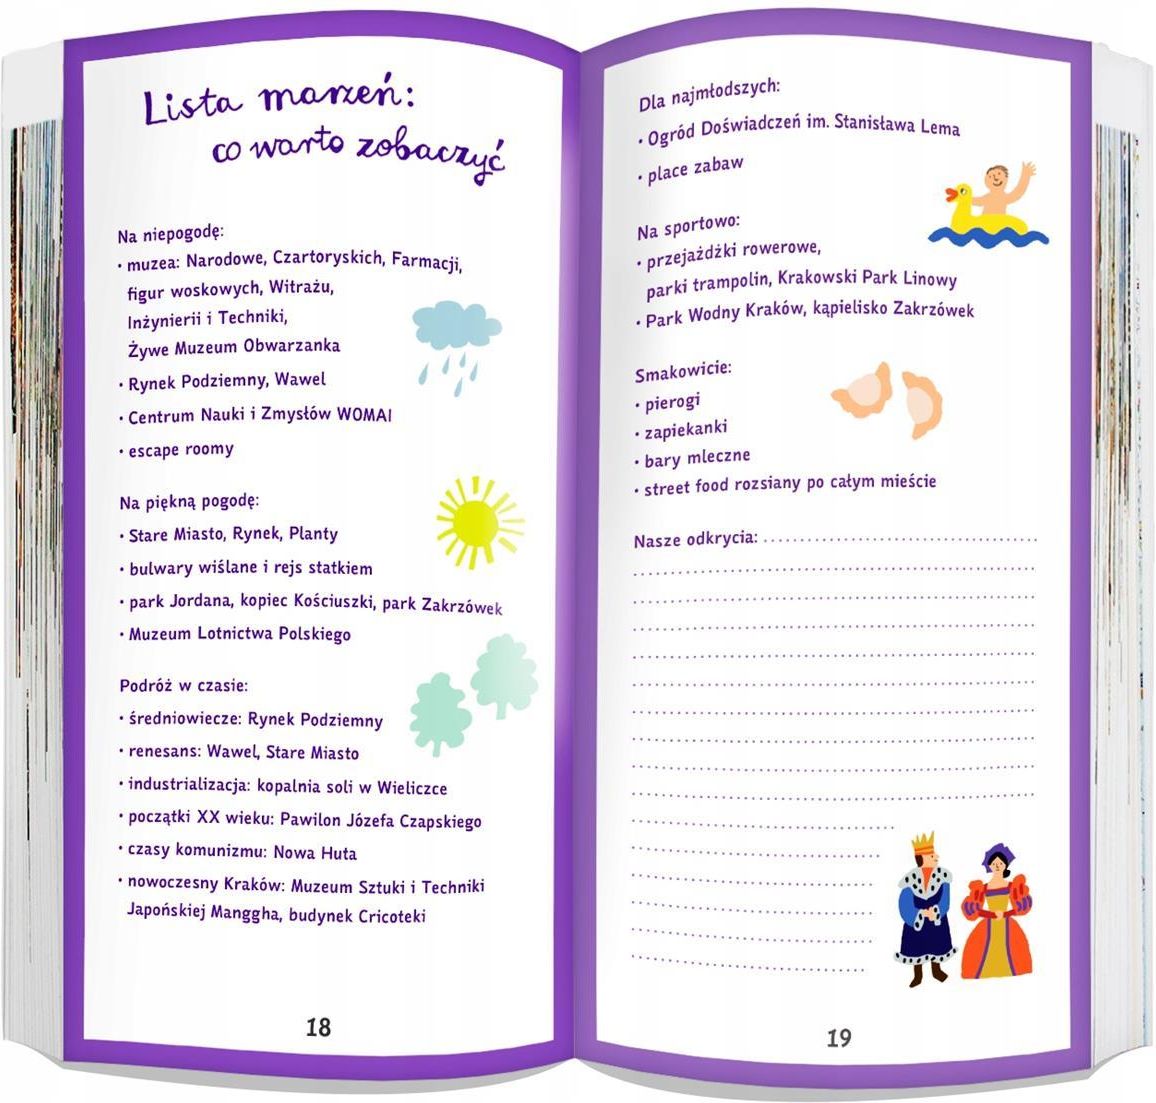 Lista marzeń:
co warto zobaczyć
Na niepogodę:
• muzea: Narodowe, Czartoryskich, Farmacji,
figur woskowych, Witrażu,
Inżynierii i Techniki,
Żywe Muzeum Obwarzanka
• Rynek Podziemny, Wawel
• Centrum Nauki i Zmysłów WOMAI
• escape roomy
Na piękną pogodę:
• Stare Miasto, Rynek, Planty
• bulwary wiślane i rejs statkiem
• park Jordana, kopiec Kościuszki, park Zakrzówek
• Muzeum Lotnictwa Polskiego
Podróż w czasie:
• średniowiecze: Rynek Podziemny
• renesans: Wawel, Stare Miasto
• industrializacja: kopalnia soli w Wieliczce
• początki XX wieku: Pawilon Józefa Czapskiego
• czasy komunizmu: Nowa Huta
• nowoczesny Kraków: Muzeum Sztuki i Techniki
Japońskiej Manggha, budynek Cricoteki
18
Dla najmłodszych:
• Ogród Doświadczeń im. Stanisława Lema
• place zabaw
Na sportowo:
• przejażdżki rowerowe,
parki trampolin, Krakowski Park Linowy
• Park Wodny Kraków, kąpielisko Zakrzówek
Smakowicie:
• pierogi
• zapiekanki
• bary mleczne
• street food rozsiany po całym mieście
Nasze odkrycia:
19